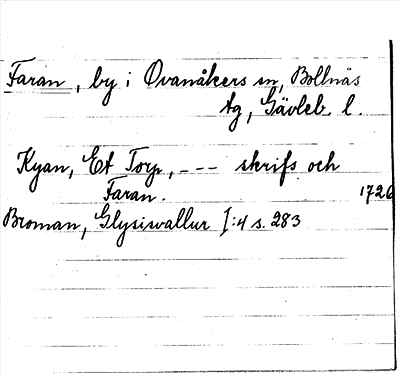 Faran, by i Ovanåkers sn, Bollnäs
tg, Gävleb. l.
Kyan, Et Torp, --- skrifs och
Faran. 1726
Broman, Glysisvallur I:4 s. 283